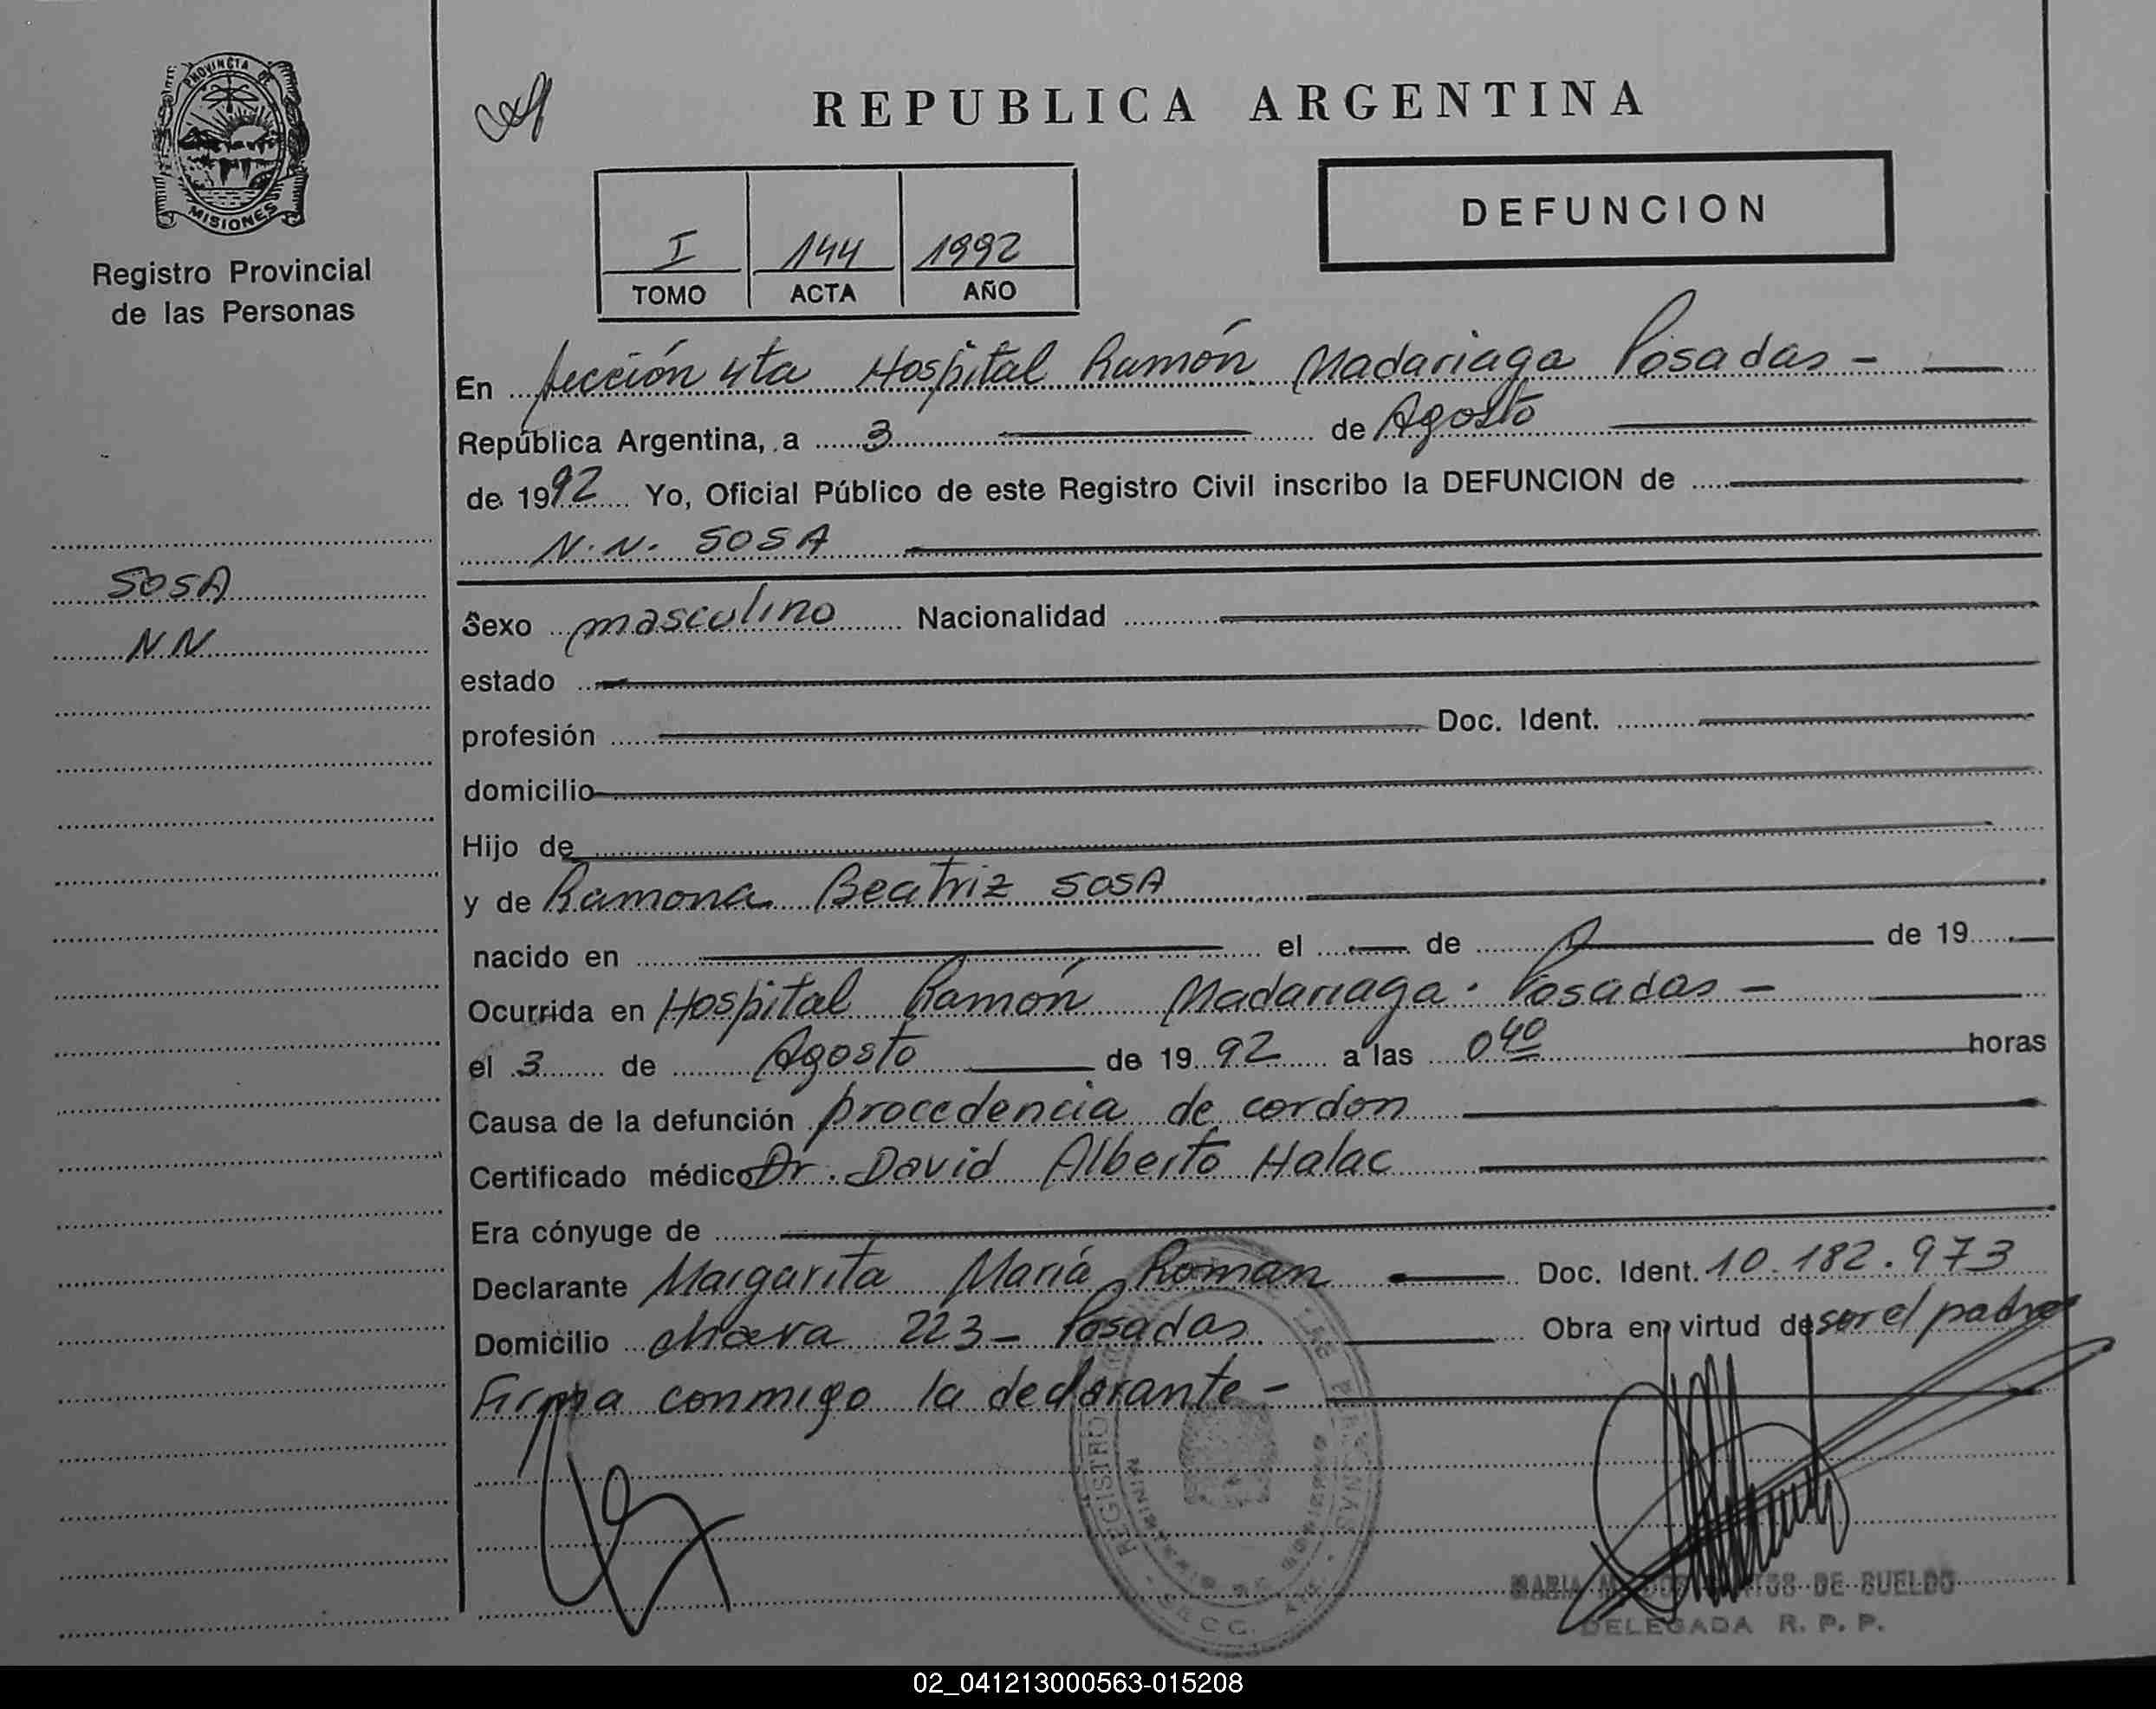 PROVINCIA DE
MISIONES
Registro Provincial
de las Personas
SOSA
NN
REPUBLICA ARGENTINA
DEFUNCION
I 144 1992
TOMO ACTA AÑO
En Sección 4ta Hospital Ramón Madariaga Posadas -
República Argentina, a 3 de Agosto
de 1992 Yo, Oficial Público de este Registro Civil inscribo la DEFUNCION de
N.N. SOSA
Sexo masculino Nacionalidad
estado
profesión Doc. Ident.
domicilio
Hijo de
y de Ramona Beatriz SOSA
nacido en el de de 19
Ocurrida en Hospital Ramón Madariaga. Posadas -
el 3 de Agosto de 1992 a las 0 40 horas
Causa de la defunción procedencia de cordon
Certificado médico Dr. David Alberto Halac
Era cónyuge de
Declarante Margarita María Roman Doc. Ident. 10.182.973
Domicilio chacra 223 - Posadas Obra en virtud de ser el padre
Firma conmigo la declarante -
REGISTRO
DE SUELDO
DELEGADA R. P. P.
02_041213000563-015208